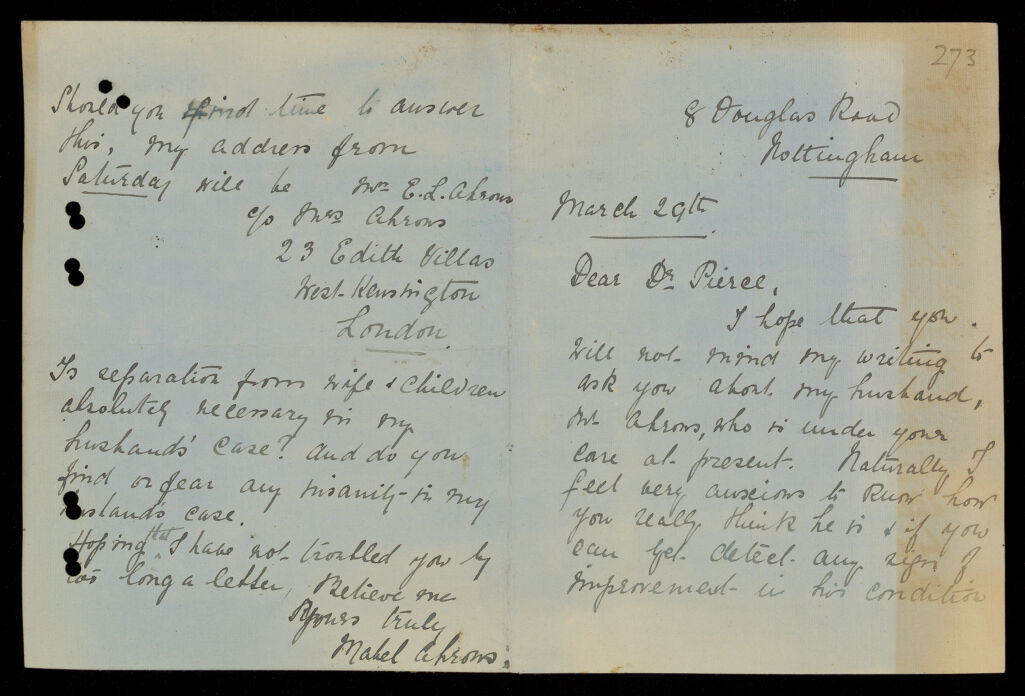 273
8 Douglas Road
Nottingham
March 29th
Dear Dr Pierce,
I hope that you
will not mind my writing to
ask you about my husband,
Mr Ahrons, who is under your
care at present. Naturally I
feel very anxious to know how
you really think he is & if you
can yet detect any sign of
improvement in his condition
Should you find time to answer
this, my address from
Saturday will be Mrs E.L. Ahrons
c/o Mrs Ahrons
23 Edith Villas
West Kensington
London
Is separation from wife & children
absolutely necessary in my
husband's case? And do you
find or fear any insanity in my
husband's case.
Hoping that I have not troubled you by
too long a letter, Believe me
Yours truly
Mabel Ahrons.